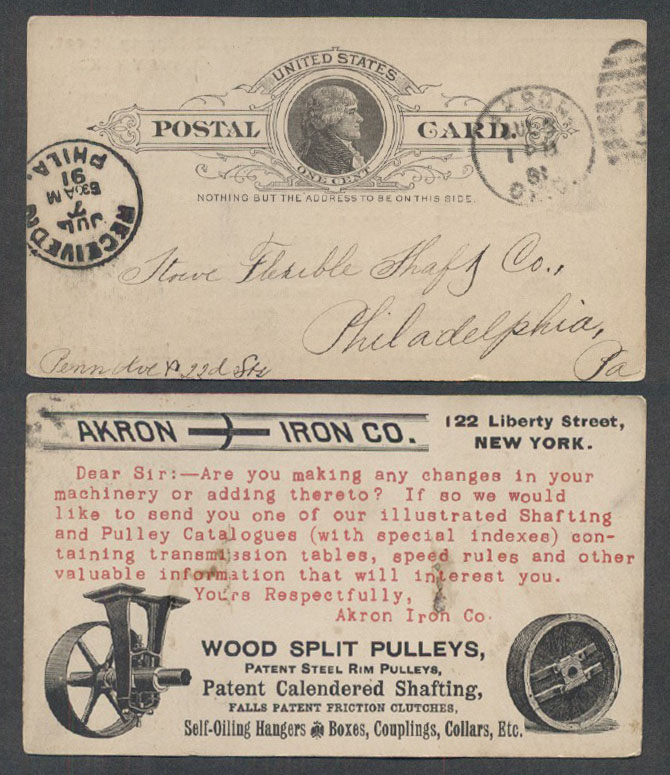 UNITED STATES
POSTAL CARD.
ONE CENT
NOTHING BUT THE ADDRESS TO BE ON THIS SIDE.
AKRON
1 PM
91
RECEIVED
JUL
7
530AM
91
PHILA.
Stowe Flexible Shaft Co.,
Philadelphia,
Pa
Penn Ave & 22d Sts
AKRON IRON CO.
122 Liberty Street,
NEW YORK.
Dear Sir:—Are you making any changes in your
machinery or adding thereto? If so we would
like to send you one of our illustrated Shafting
and Pulley Catalogues (with special indexes) con-
taining transmission tables, speed rules and other
valuable information that will interest you.
Yours Respectfully,
Akron Iron Co.
WOOD SPLIT PULLEYS,
PATENT STEEL RIM PULLEYS,
Patent Calendered Shafting,
FALLS PATENT FRICTION CLUTCHES,
Self-Oiling Hangers Boxes, Couplings, Collars, Etc.